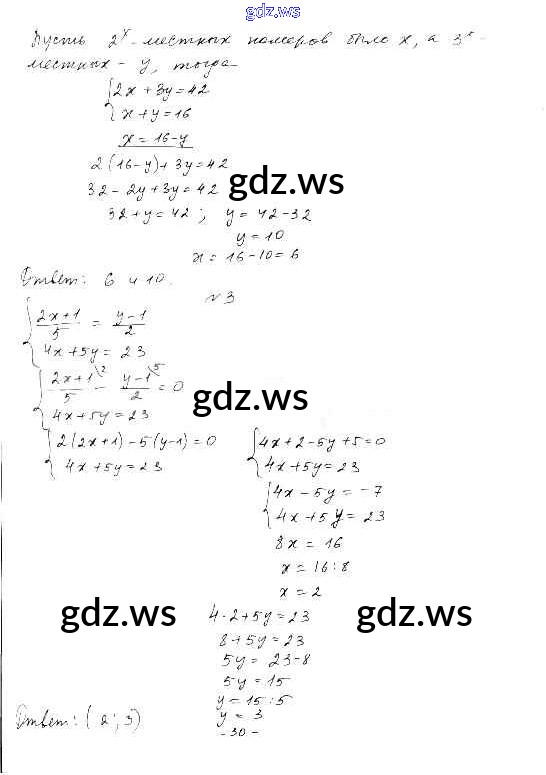 gdz.ws
Пусть 2ˣ-местных номеров было x, а 3ˣ-
местных - y, тогда
2x + 3y = 42
x + y = 16
x = 16-y
2(16-y)+3y=42
32-2y+3y=42
32+y=42 ; y=42-32
y=10
x = 16-10=6
Ответ: 6 и 10.
№3
(2x+1)/5 = (y-1)/2
4x+5y=23
(2x+1\2)/5 - (y-1\5)/2 = 0
4x+5y=23
2(2x+1)-5(y-1)=0
4x+5y=23
4x+2-5y+5=0
4x+5y=23
4x-5y=-7
4x+5y=23
8x = 16
x = 16:8
x = 2
4·2+5y=23
8+5y=23
5y = 23-8
5y = 15
y = 15:5
y = 3
Ответ: (2; 3)
- 30 -
gdz.ws
gdz.ws
gdz.ws
gdz.ws